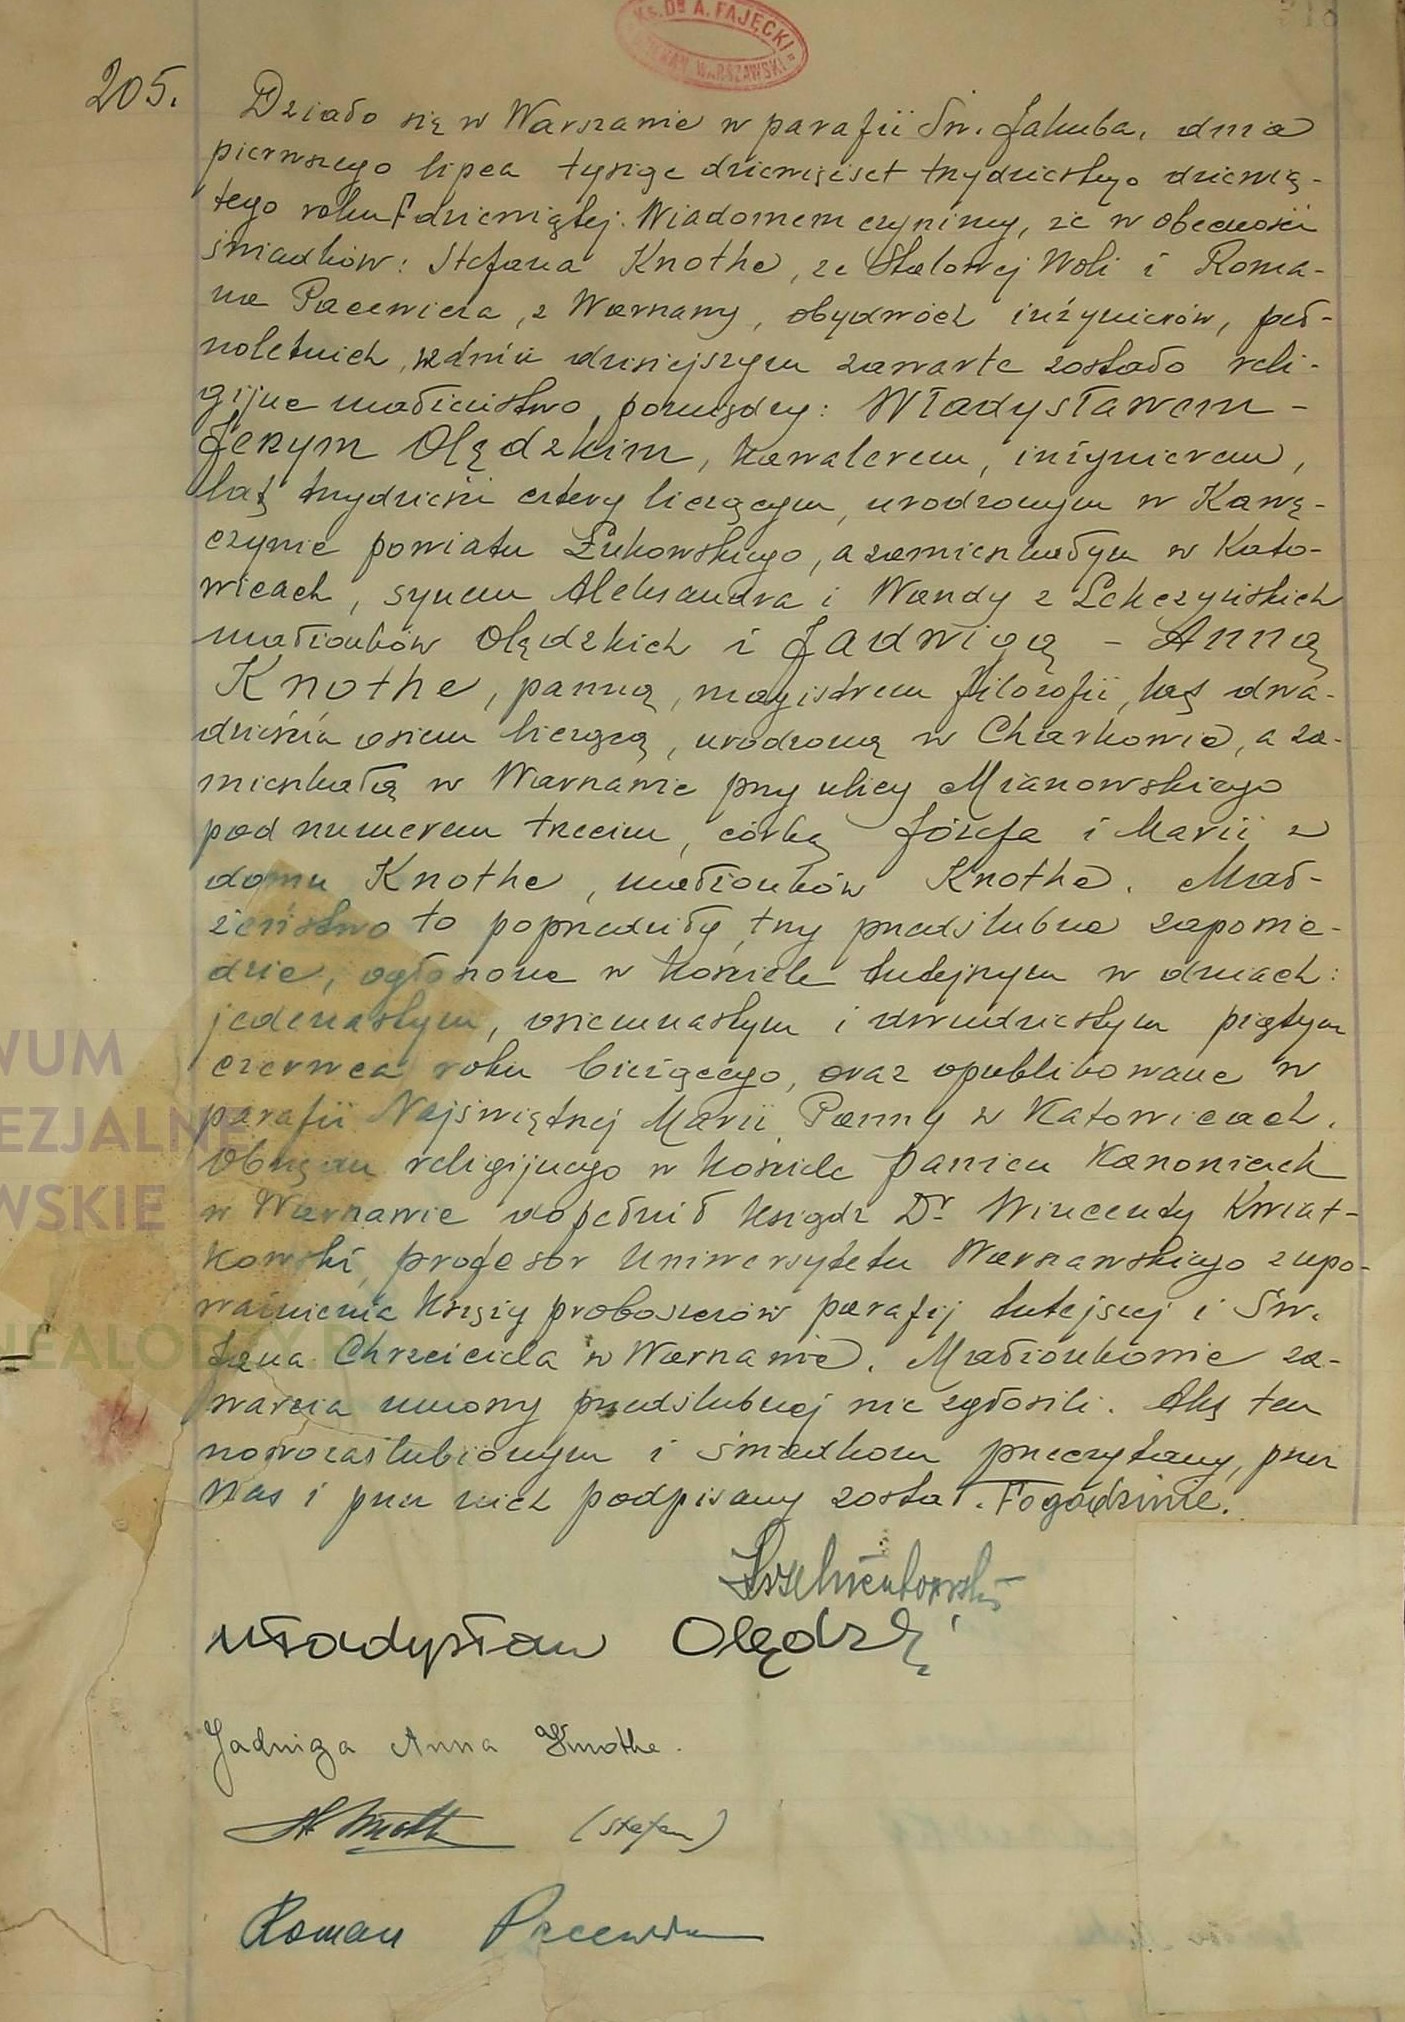 Ks. Dr A. FAJĘCKI
DZIEKAN WARSZAWSKI
205.
Działo się w Warszawie w parafii Św. Jakuba, dnia
pierwszego lipca tysiąc dziewięset trzydziestego dziewią-
tego roku Γdziewiątej. Wiadomem czynimy, że w obecności
świadków: Stefana Knothe, ze Stalowej Woli i Roma-
na Pacewicza, z Warszawy, obydwóch inżynierów, peł-
noletnich, w dniu dzisiejszym zawarte zostało reli-
gijne małżeństwo pomiędzy: Władysławem -
Jerzym Olędzkim, kawalerem, inżynierem,
lat trzydzieści cztery liczącym, urodzonym w Kawę-
czynie powiatu Łukowskiego, a zamieszkałym w Kato-
wicach, synem Aleksandra i Wandy z Lekczyńskich
małżonków Olędzkich i Jadwigą - Anną
Knothe, panną, magistrem filozofii, lat dwa-
dzieścia osiem liczącą, urodzoną w Charkowie, a za-
mieszkałą w Warszawie przy ulicy Mianowskiego
pod numerem trzecim, córką Józefa i Marii z
domu Knothe, małżonków Knothe. Mał-
żeństwo to poprzedziły trzy przedślubne zapowie-
dzie, ogłoszone w kościele tutejszym w dniach:
jedenastym, osiemnastym i dwudziestym piątym
czerwca roku bieżącego, oraz opublikowane w
parafii Najświętszej Marii Panny w Katowicach.
Obrzędu religijnego w kościele Panien Kanoniczek
w Warszawie dopełnił ksiądz Dr Wincenty Kwiat-
kowski, profesor Uniwersytetu Warszawskiego z upo-
ważnienia księży proboszczów parafij tutejszej i Św.
Jana Chrzciciela w Warszawie. Małżonkowie za-
warcia umowy przedślubnej nie zgłosili. Akt ten
nowozaślubionym i świadkom przeczytany, przez
Nas i przez nich podpisany został. Γo godzinie.
Władysław Olędzki
Jadwiga Anna Knothe.
St Knothe (Stefan)
Roman Pacewicz
WUM
EZJALNE
WSKIE